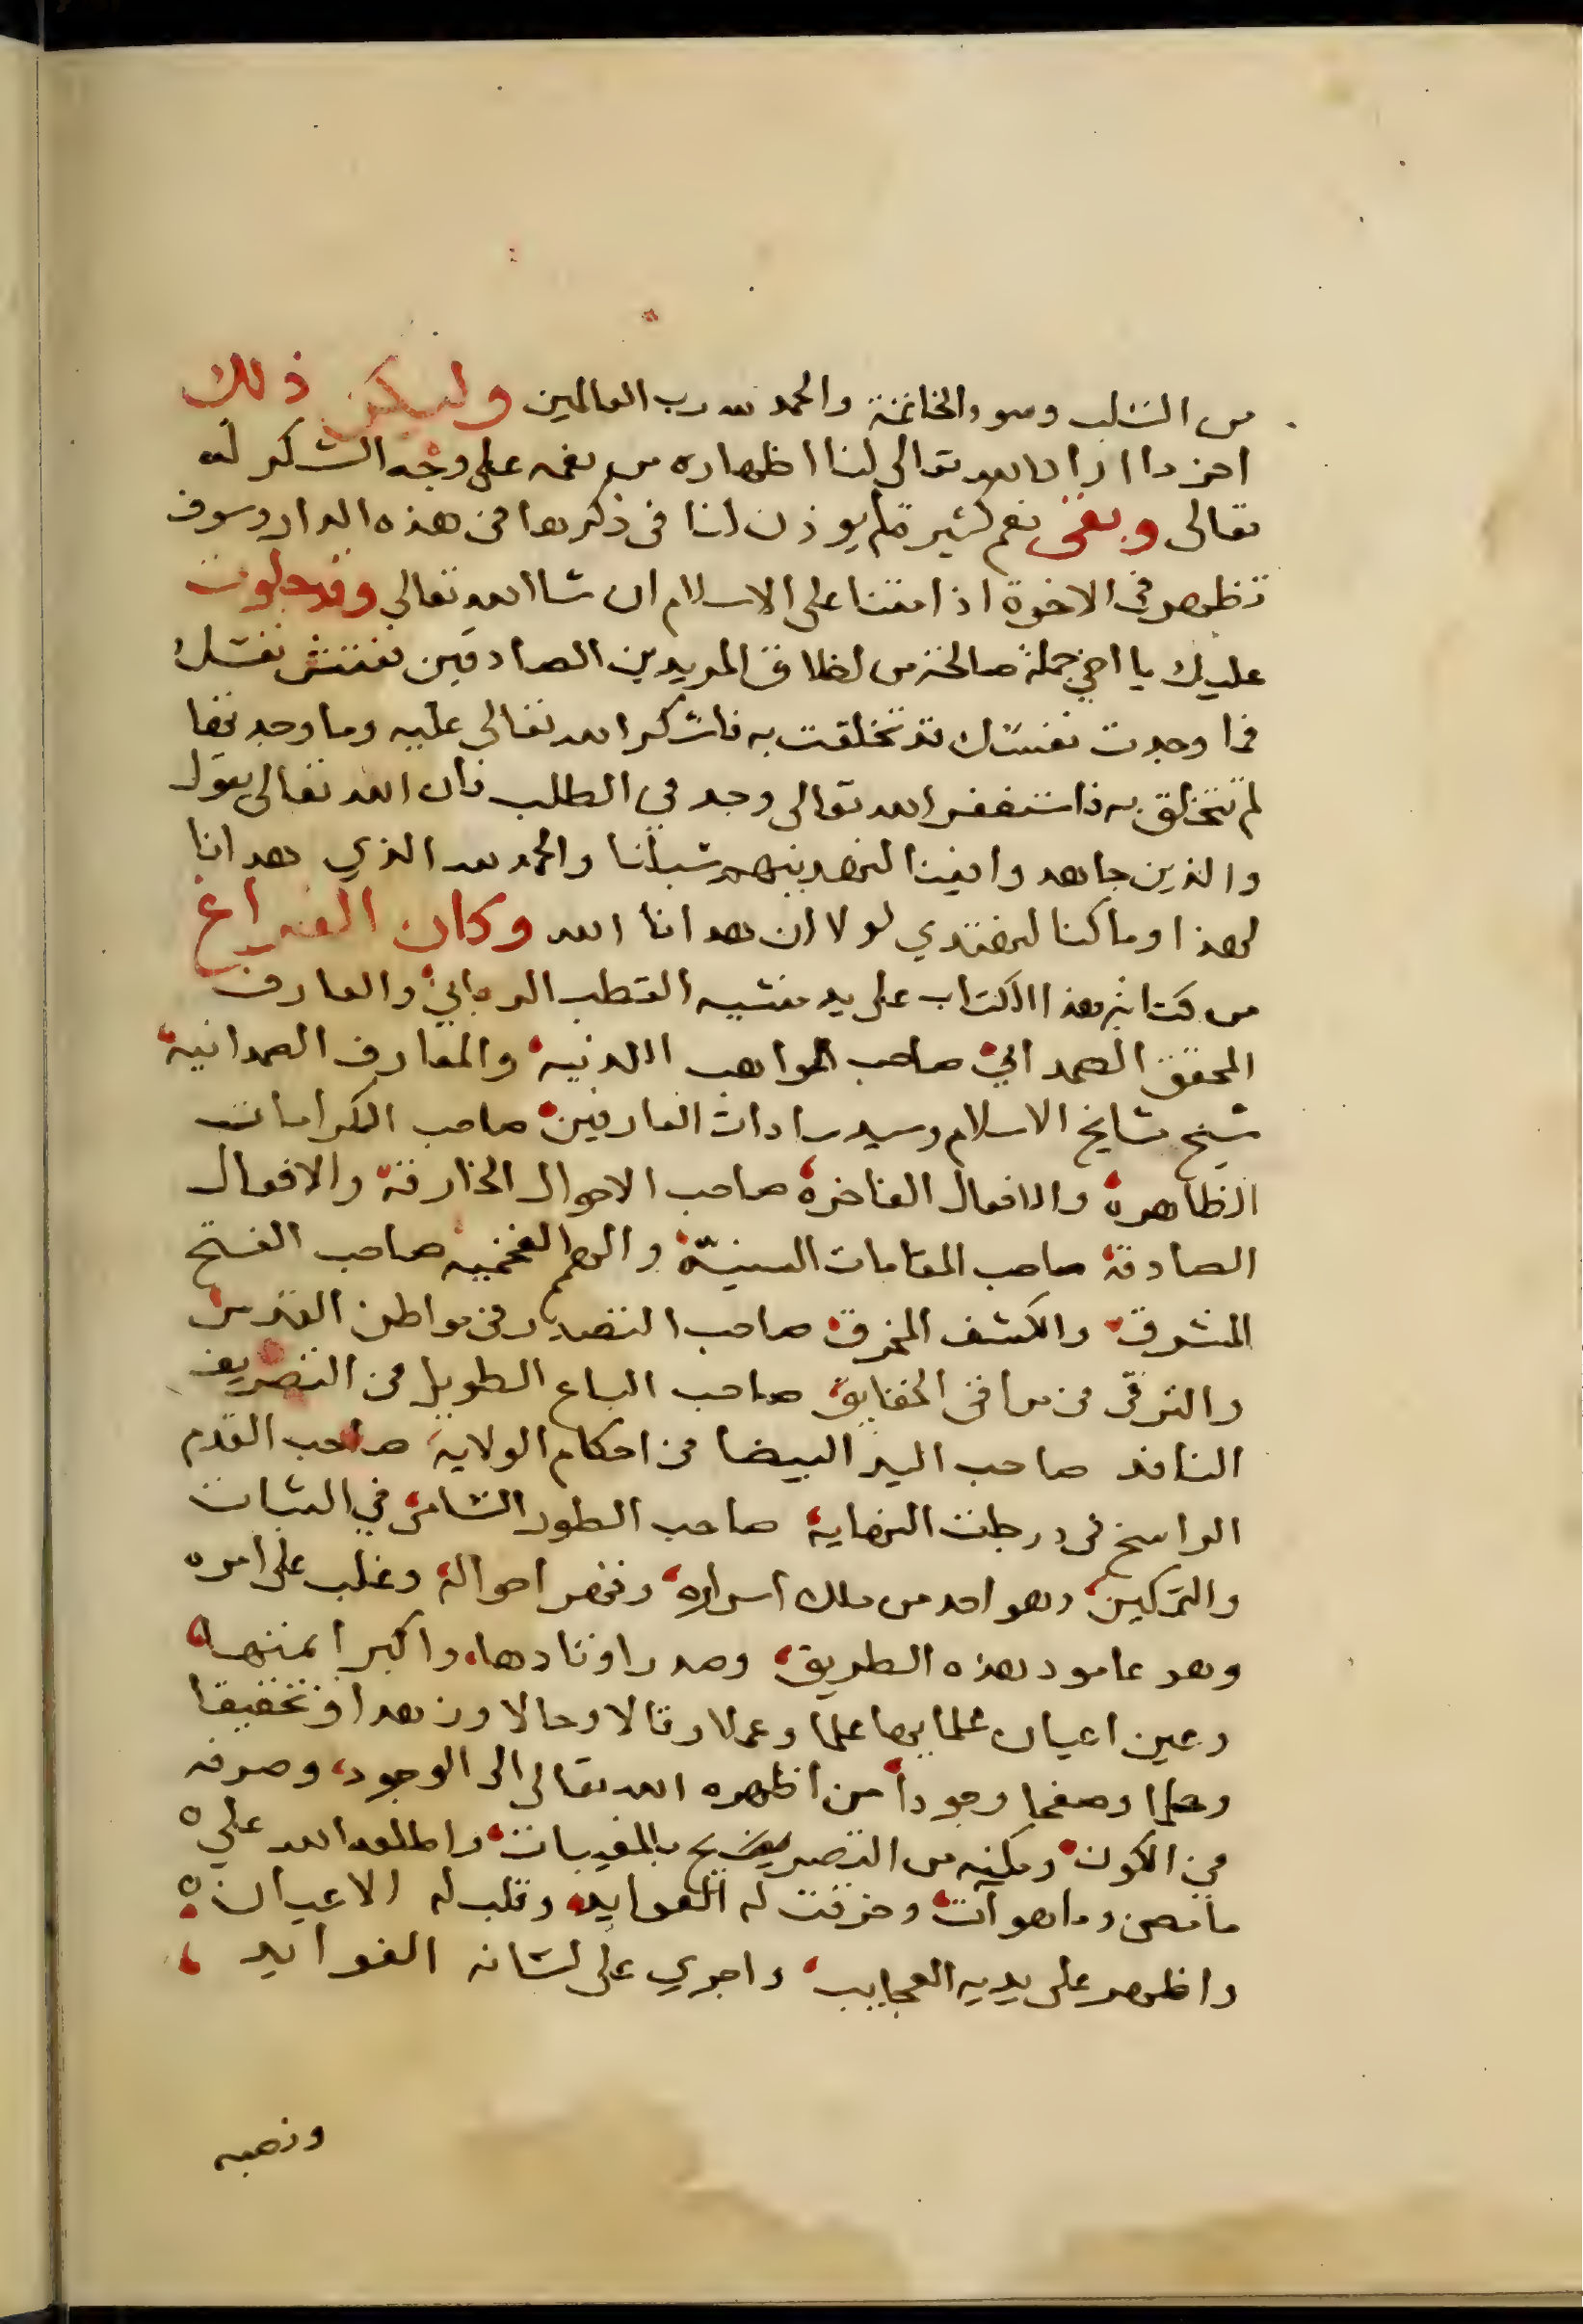 من السلب وسوء الخاتمة والحمد لله رب العالمين وليكن ذلك
اخر ما اراد الله تعالى لنا اظهاره من نعمه على وجه الشكر له
تعالى وبقى نعم كثير فلم يوذن لنا فى ذكرها فى هذه الدار وسوف
تظهر في الاخرة اذا متنا على الاسلام ان شا الله تعالى وقد جلوت
عليك يا اخي جملة صالحة من اخلاق المريدين الصادقين ففتش نفسك
فما وجدت نفسك قد تخلقت به فاشكر الله تعالى عليه وما وجدتها
لم تتخلق به فاستغفر الله تعالى وجد في الطلب فان الله تعالى يقول
والذين جاهدوا فينا لنهدينهم سبلنا والحمد لله الذي هدانا
لهذا وما كنا لنهتدي لولا ان هدانا الله وكان الفراغ
من كتابة هذا الكتاب على يد منشيه القطب الرباني والعارف
المحقق الصمداني صاحب المواهب اللدنية والمعارف الصمدانية
شيخ مشايخ الاسلام وسيد سادات العارفين صاحب الكرامات
الظاهرة والافعال الفاخرة صاحب الاحوال الخارقة والافعال
الصادقة صاحب المقامات السنية والهمم الفخمية صاحب الفتح
المشرق والكشف المخرق صاحب التصدر فى مواطن القدس
والترقى فى مراقى الحقايق صاحب الباع الطويل فى التصريف
النافد صاحب اليد البيضا فى احكام الولاية صاحب القدم
الراسخ فى درجات النهاية صاحب الطور السامى في الثبات
والتمكين وهو احد من ملك اسراره وقهر احواله وغلب على امره
وهو عامود هذه الطريق وصدر اوتادها واكبر ايمتها
وعين اعيان علمايها علما وعملا وقالا وحالا وزهدا وتحقيقا
وحلما وصفحا وجودا من اظهره الله تعالى الى الوجود وصرفه
في الكون ومكنه من التصريف بالمغيبات واطلعه الله على
ما مضى وما هو آت وخرقت له العوايد وقلب له الاعيان
واظهر على يديه العجايب واجري على لسانه الفوايد
ونصبه